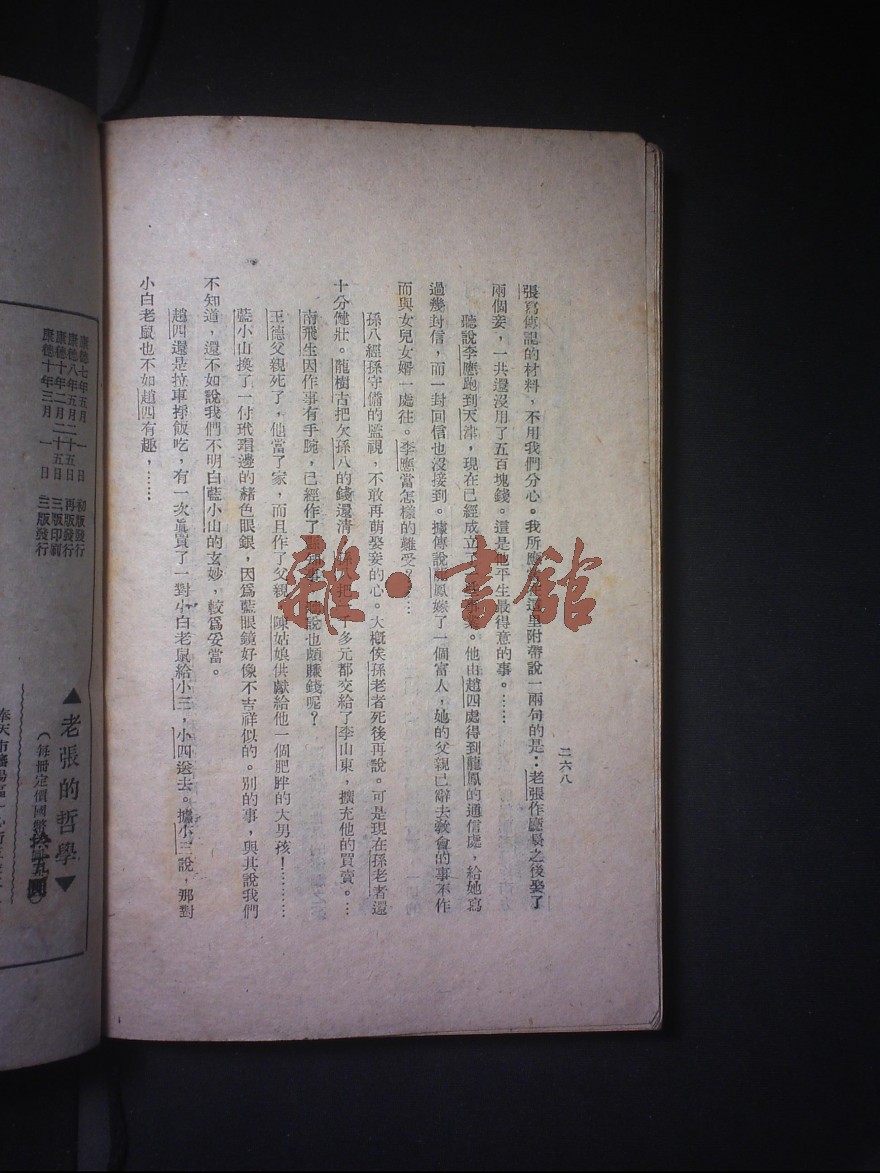 二六八
張寫傳記的材料，不用我們分心。我所應當在這里附帶說一兩句的是：老張作廳長之後娶了
兩個妾，一共還沒用了五百塊錢。這是他平生最得意的事。……
聽說李應跑到天津，現在已經成立了事業。他由趙四處得到龍鳳的通信處，給她寫
過幾封信，而一封回信也沒接到。據傳說龍鳳嫁了一個富人，她的父親已辭去敎會的事不作
而與女兒女婿一處往。李應當怎樣的難受？……
孫八經孫守備的監視，不敢再萌娶妾的心。大槪俟孫老者死後再說。可是現在孫老者還
十分健壯。龍樹古把欠孫八的錢還清，孫八把一千多元都交給了李山東，擴充他的買賣。…
南飛生因作事有手腕，已經作了　聽說也頗賺錢呢？
王德父親死了，他當了家，而且作了父親，陳姑娘供獻給他一個肥胖的大男孩！…………
藍小山換了一付玳瑁邊的赭色眼銀，因爲藍眼鏡好像不吉祥似的。別的事，與其說我們
不知道，還不如說我們不明白藍小山的玄妙，較爲妥當。
趙四還是拉車掙飯吃，有一次眞買了一對小白老鼠給小三，小四送去。據小三說，那對
小白老鼠也不如趙四有趣，……
雜·書館
康德七年五月一日　初版發行
康德八年五月二十五日　再版發行
康德十年二月二十五日　三版印刷
康德十年三月一日　三版發行
▲老張的哲學▼
（每冊定價國幣　五圓）
奉天市瀋陽區